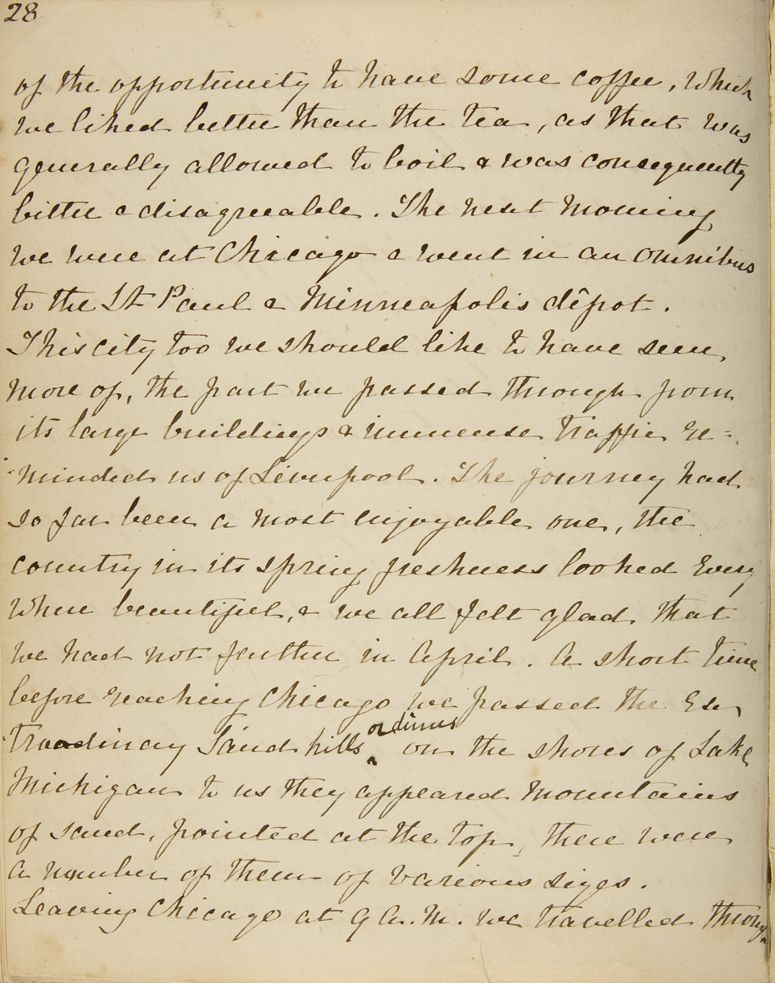 28
of the opportunity to have some coffee, which
we liked better than the tea, as that was
generally allowed to boil & was consequently
bitter & disagreeable. The next morning
we were at Chicago & went in an omnibus
to the St Paul & Minneapolis dêpot.
This city too we should like to have seen
more of, the part we passed through from
its large buildings & immense traffic re=
minded us of Liverpool. The journey had
so far been a most enjoyable one, the
country in its spring freshness looked every
where beautiful, & we all felt glad that
we had not further in April. A short time
before reaching Chicago we passed the Ex
traordinary Sand hills or dunes on the shores of Lake
Michigan to us they appeared mountains
of sand, pointed at the top, there were
a number of them of various sizes.
Leaving Chicago at 9 A.M. we travelled through